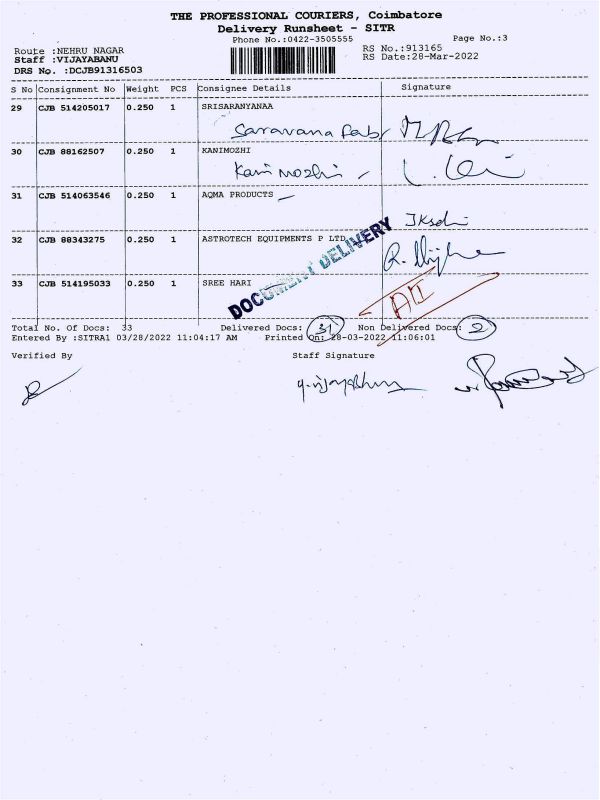 THE PROFESSIONAL COURIERS, Coimbatore
Delivery Runsheet - SITR
Phone No.:0422-3505555 Page No.:3
Route :NEHRU NAGAR RS No.:913165
Staff :VIJAYABANU RS Date:28-Mar-2022
DRS No. :DCJB91316503
S No Consignment No Weight PCS Consignee Details Signature
29 CJB 514205017 0.250 1 SRISARANYANAA
Saravana
30 CJB 88162507 0.250 1 KANIMOZHI
Kanimozhi
31 CJB 514063546 0.250 1 AQMA PRODUCTS
32 CJB 88343275 0.250 1 ASTROTECH EQUIPMENTS P LTD
DOCUMENT DELIVERY
33 CJB 514195033 0.250 1 SREE HARI
Total No. Of Docs: 33 Delivered Docs: 31 Non Delivered Docs: 2
Entered By :SITRA1 03/28/2022 11:04:17 AM Printed On: 28-03-2022 11:06:01
Verified By Staff Signature